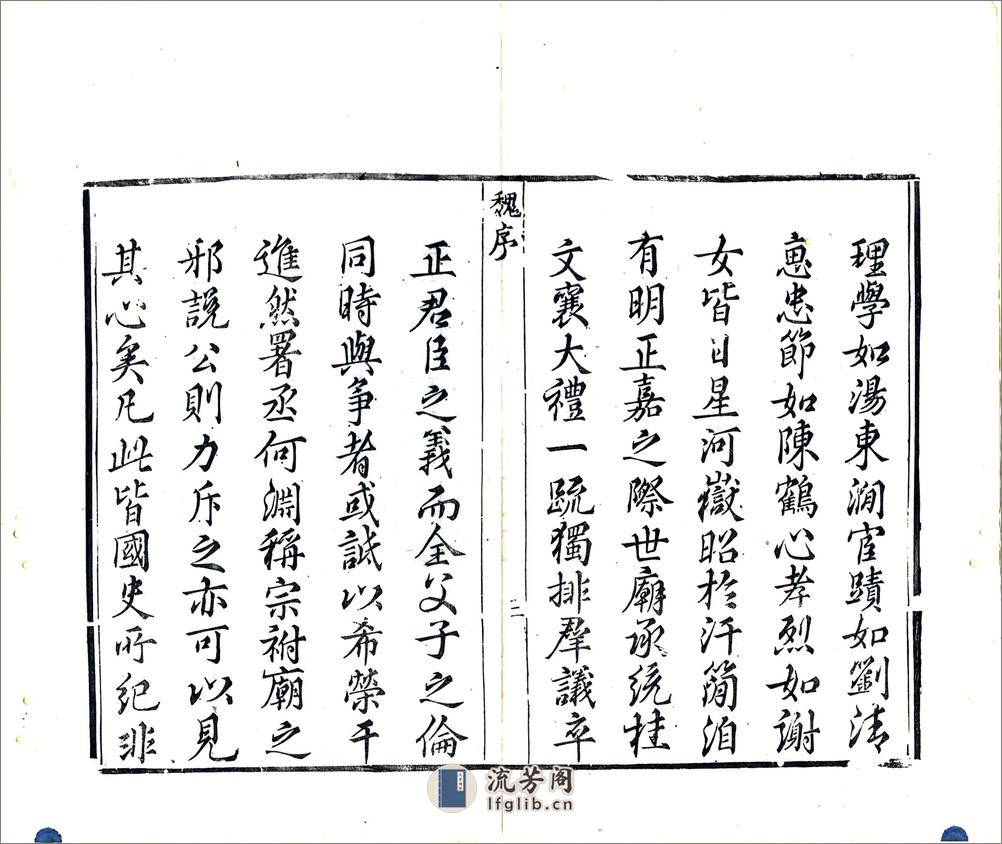 理學如湯東澗宦蹟如劉清
惠忠節如陳鶴心孝烈如謝
女皆日星河嶽昭於汗簡洎
有明正嘉之際世廟承統桂
文襄大禮一疏獨排羣議卒
魏序
二
正君臣之義而全父子之倫
同時與爭者或詆以希榮干
進然署丞何淵稱宗祔廟之
邪說公則力斥之亦可以見
其心矣凡此皆國史所紀非
流芳阁
lfglib.cn